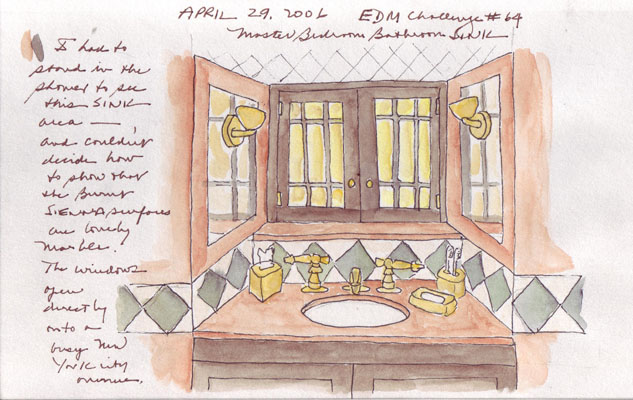 APRIL 29, 2006 EDM Challenge #64
Master Bedroom Bathroom SINK
I had to
stand in the
shower to see
this SINK
area —
and couldn't
decide how
to show that
the Burnt
SIENNA surfaces
are lovely
marble.
The windows
open
directly
onto a
busy New
York City
avenue.